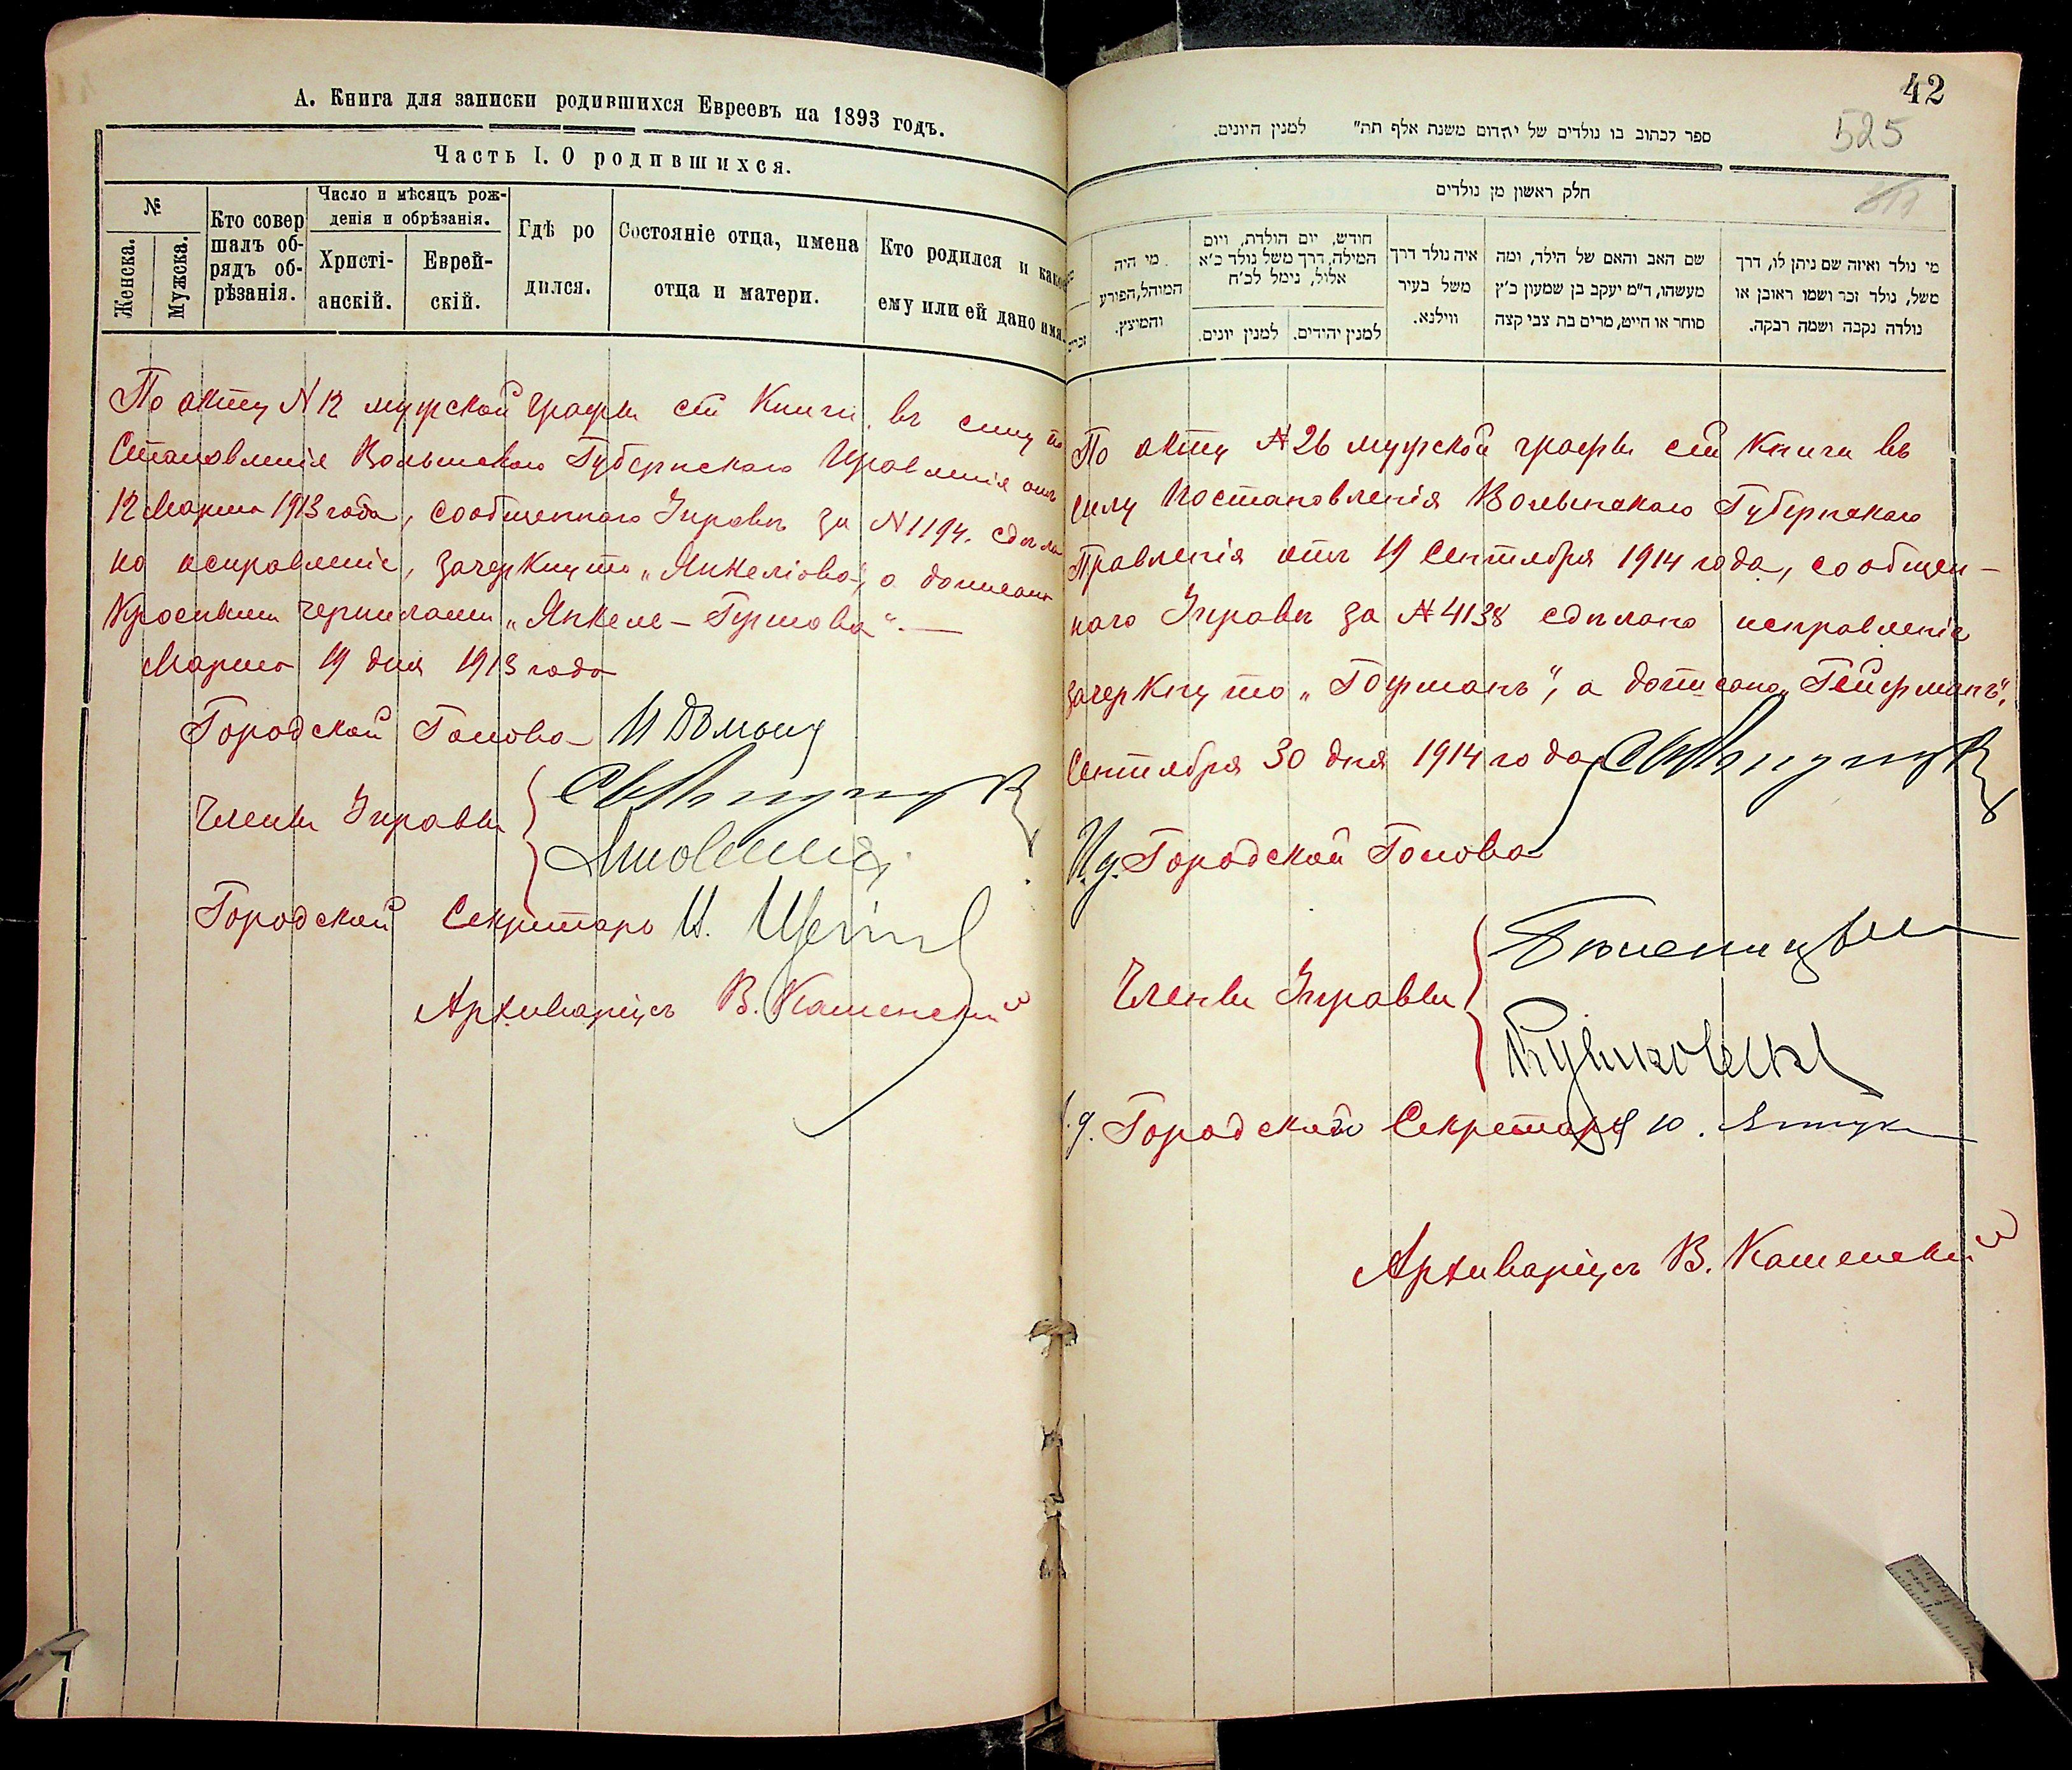 А. Книга для записки родившихся Евреевъ на 1893 годъ.
Часть I. О родившихся.
№
Женска.
Мужска.
Кто совер
шалъ об-
рядъ об-
рѣзанія.
Число и мѣсяцъ рож-
денія и обрѣзанія.
Христі-
анскій.
Еврей-
скій.
Гдѣ ро
дился.
Состояніе отца, имена
отца и матери.
Кто родился и какое
ему или ей дано имя.
По акту № 12 мужской графы сей Книги, въ силу по
становленія Волынскаго Губернскаго Правленія отъ
12 Марта 1913 года, сообщеннаго Управѣ за № 1194. сдѣла
но исправленіе, зачеркнуто „Янкеліова", а дописано
Красными чернилами „Янкеле-Гершова". —
Марта 19 дня 1913 года
Городской Голова
Члены Управы
Городской Секретарь
Архиваріусъ В. Каменскій
42
525
ספר לכתוב בו נולדים של יהדום משנת אלף תת" למנין היונים.
חלק ראשון מן נולדים
מי היה
המוהל, הפורע
והמוצץ.
חודש, יום הולדת, ויום
המילה, דרך משל נולד כ'א
אלול, נימל לכ'ח
למנין יונים.
למנין יהידים.
איה נולד דרך
משל בעיר
ווילנא.
שם האב והאם של הילד, ומה
מעשהו, ד"מ יעקב בן שמעון כ'ץ
סוחר או חייט, מרים בת צבי קצה
מי נולד ואיזה שם ניתן לו, דרך
משל, נולד זכר ושמו ראובן או
נולדה נקבה ושמה רבקה.
По акту № 26 мужской графы сей Книги въ
силу Постановленія Волынскаго Губернскаго
Правленія отъ 19 Сентября 1914 года, сообщен-
наго Управѣ за № 4138 сдѣлано исправленіе
зачеркнуто „Гофманъ", а дописано „Гейфманъ".
Сентября 30 дня 1914 года
И.д. Городской Голова
Члены Управы
д. Городского Секретаря Ю.
Архиваріусъ В. Каменскій